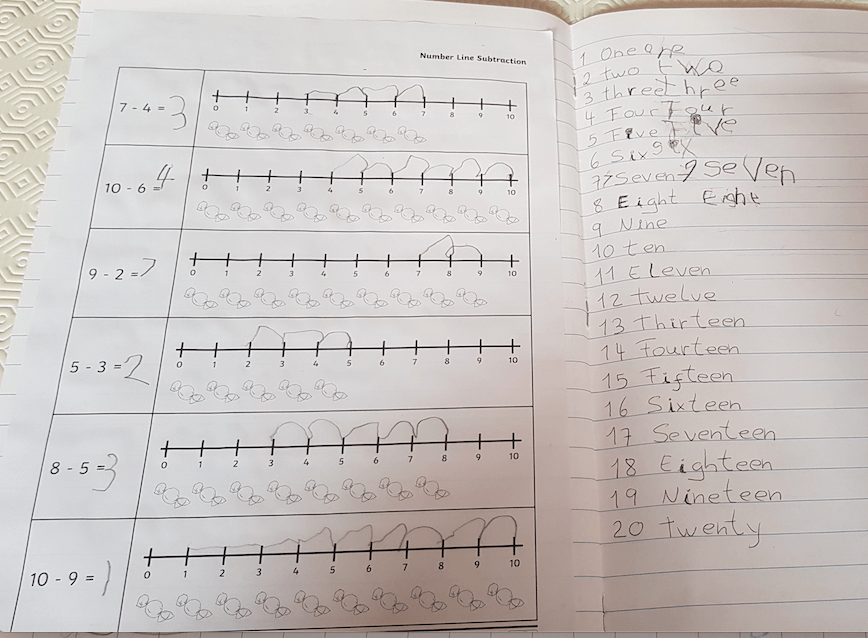 Number Line Subtraction
7 - 4 = 3
0 1 2 3 4 5 6 7 8 9 10
10 - 6 = 4
0 1 2 3 4 5 6 7 8 9 10
9 - 2 = 7
0 1 2 3 4 5 6 7 8 9 10
5 - 3 = 2
0 1 2 3 4 5 6 7 8 9 10
8 - 5 = 3
0 1 2 3 4 5 6 7 8 9 10
10 - 9 = 1
0 1 2 3 4 5 6 7 8 9 10
1 One one
2 two two
3 three three
4 Four Four
5 Five Five
6 Six
7 Seven seven
8 Eight Eight
9 Nine
10 ten
11 Eleven
12 twelve
13 thirteen
14 Fourteen
15 Fifteen
16 Sixteen
17 Seventeen
18 Eighteen
19 Nineteen
20 twenty